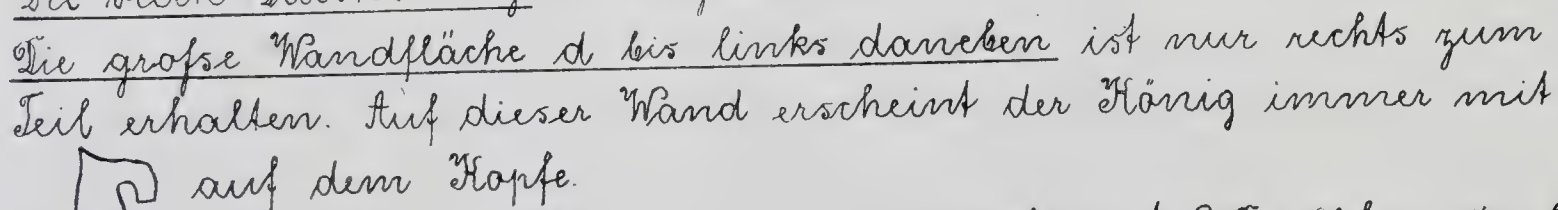 Die große Wandfläche d bis links daneben ist nur rechts zum
Teil erhalten. Auf dieser Wand erscheint der König immer mit
auf dem Kopfe.